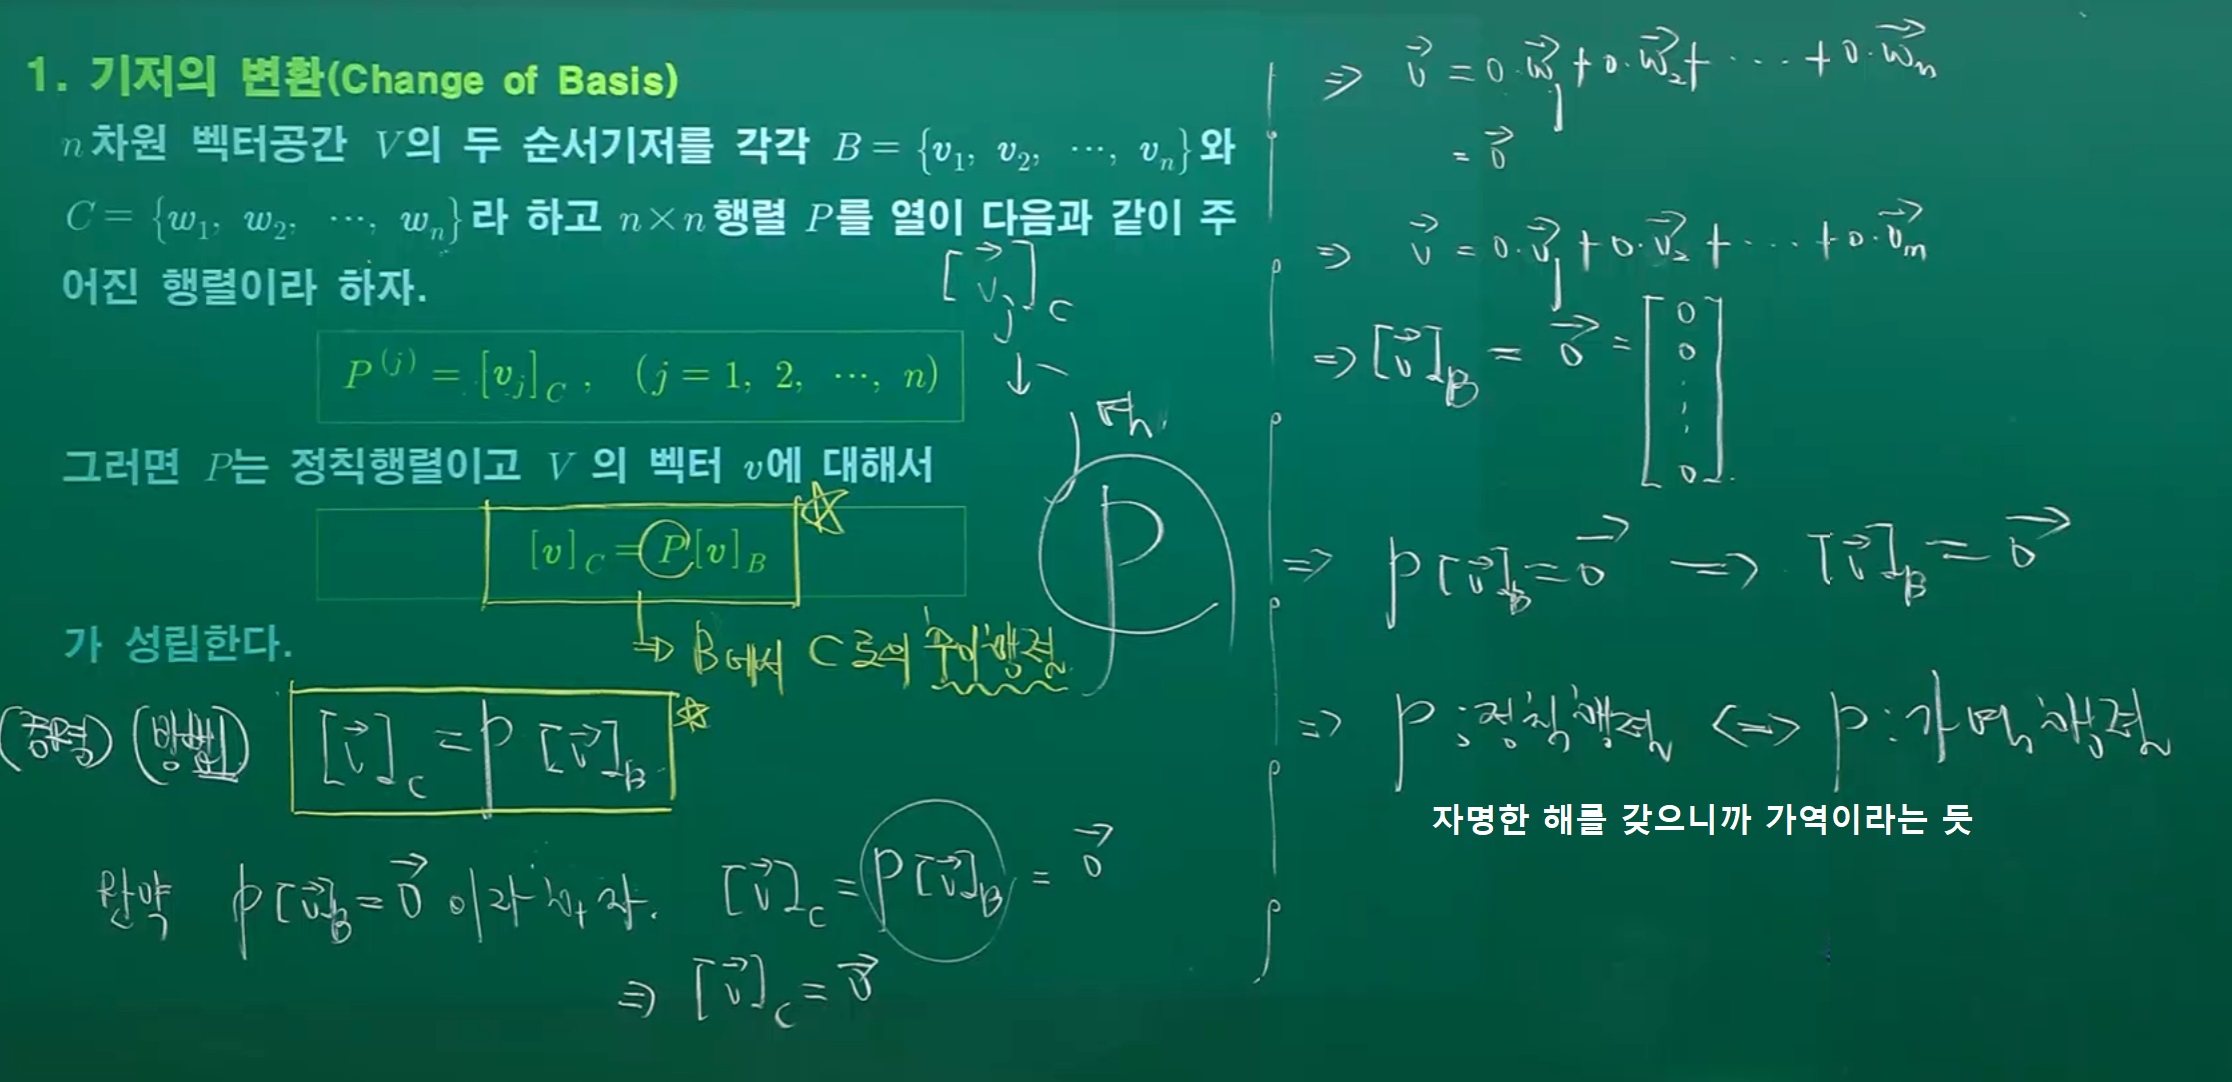 1. 기저의 변환(Change of Basis)
n차원 벡터공간 V의 두 순서기저를 각각 B = {v₁, v₂, ⋯, vₙ}와
C = {w₁, w₂, ⋯, wₙ}라 하고 n×n행렬 P를 열이 다음과 같이 주
어진 행렬이라 하자.
[v⃗ⱼ]_C
↓
P^(j) = [vⱼ]_C , (j = 1, 2, ⋯, n)
그러면 P는 정칙행렬이고 V 의 벡터 v에 대해서
P
[v]_C = P[v]_B ☆
⇒ B에서 C로의 추이행렬
가 성립한다.
(증명) (방법1) [v⃗]_C = P [v⃗]_B ☆
만약 P[v⃗]_B = 0⃗ 이라 하자. [v⃗]_C = P[v⃗]_B = 0⃗
⇒ [v⃗]_C = 0⃗
⇒ v⃗ = 0·w⃗₁ + 0·w⃗₂ + ⋯ + 0·w⃗ₙ
= 0⃗
⇒ v⃗ = 0·v⃗₁ + 0·v⃗₂ + ⋯ + 0·v⃗ₙ
⇒ [v⃗]_B = 0⃗ = [0 0 ⋮ 0]
⇒ P[v⃗]_B = 0⃗ ⇒ [v⃗]_B = 0⃗
⇒ P : 정칙행렬 ⇔ P : 가역행렬
자명한 해를 갖으니까 가역이라는 듯